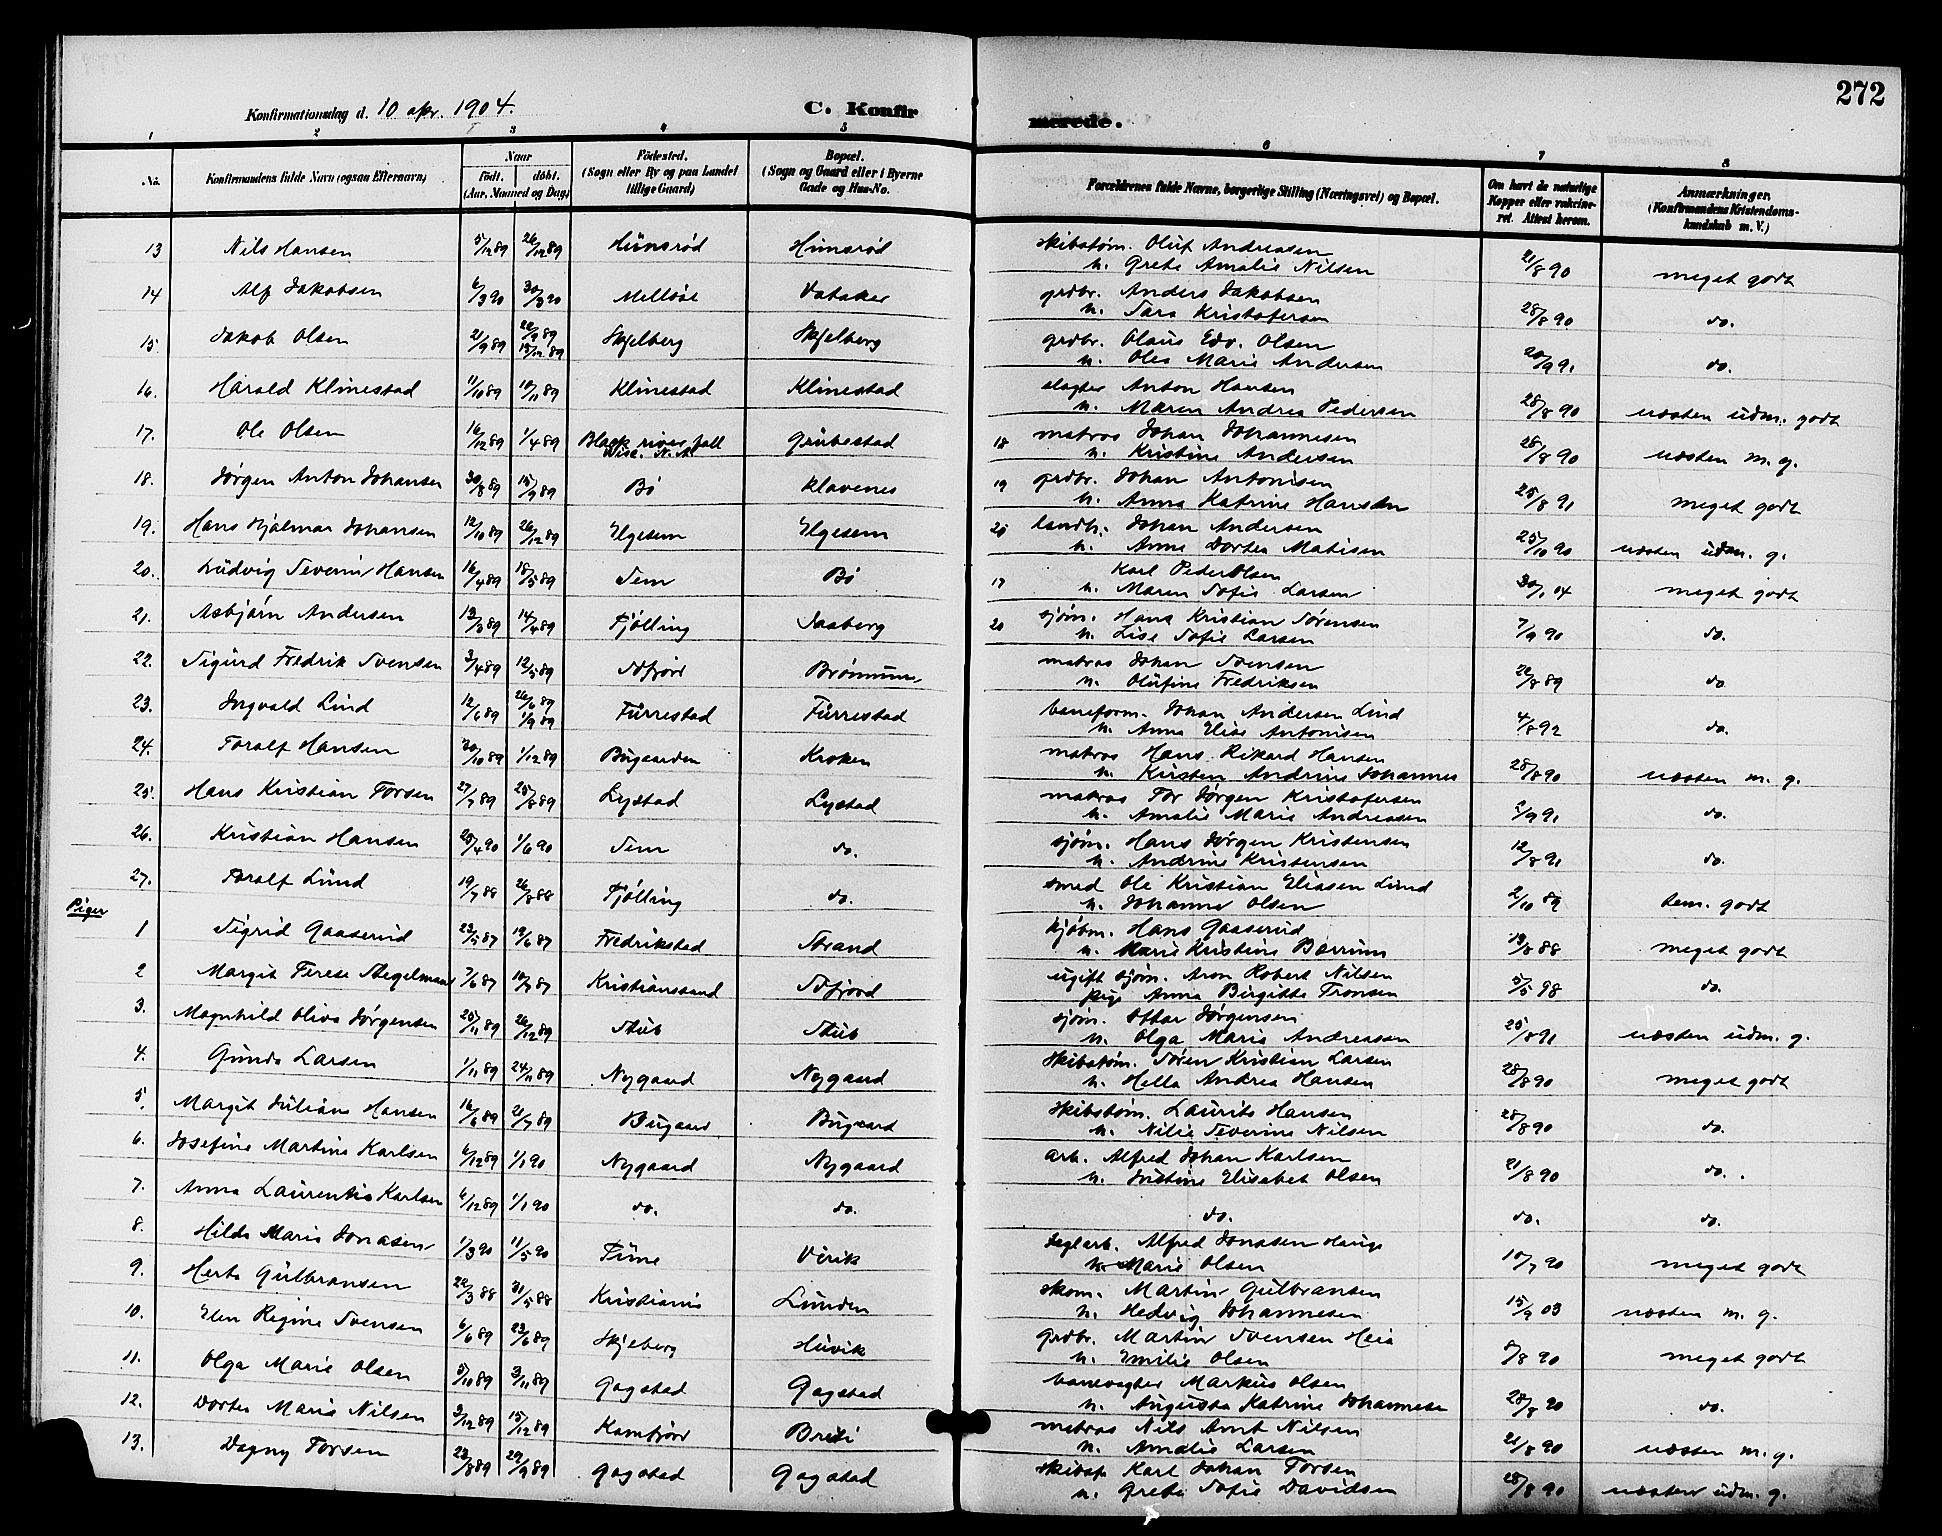 272
Konfirmationsdag d. 10 apr. 1904.
C. Konfirmerede.
1 2 3 4 5 6 7 8
No. Konfirmandens fulde Navn (ogsaa Efternavn) Naar födt. döbt. (Aar, Maaned og Dag) Födested. (Sogn eller By og paa Landet tillige Gaard) Bopæl. (Sogn og Gaard eller i Byerne Gade og Hus-No. Forældrenes fulde Navne, borgerlige Stilling (Næringsvei) og Bopæl. Om havt de naturlige Kopper eller vakcineret. Attest herom. Anmærkninger. (Konfirmandens Kristendomskundskab m. V.)
13 Nils Hansen 5/12 89 26/12 89 Hünsrød Hünsrød skibstøm. Oluf Andreassen
n. Grete Amalie Nilsen 21/8 90 meget godt
14 Alf Jakobsen 6/3 90 30/3 90 Melløse Vataker grdbr. Anders Jakobsen
n. Sara Kristofersen 28/8 90 do.
15 Jakob Olsen 21/9 89 22/9 89 15/12 89 Skjelberg Skjelberg grdbr. Olaus Edv. Olsen
n. Olea Marie Andersen 20/9 91 do.
16. Harald Klinestad 11/10 89 10/11 89 Klinestad Klinestad slagter Anton Hansen
n. Maren Andrea Pedersen 28/8 90 næsten üdm. godt
17. Ole Olsen 16/12 89 1/4 89 Black river fall Wisc. N.A. Grübestad 18 matros Johan Johannesen
n. Kristine Andersen 28/8 90 næsten m. g.
18. Jørgen Anton Johansen 30/8 89 15/9 89 Bö Klavenes 19 grdbr. Johan Antonisen
n. Anna Katrine Hansdn 25/8 91 meget godt
19. Hans Hjalmar Johansen 12/10 89 26/12 89 Elgesem Elgesem 20 landh. Johan Andersen
n. Anne Dortea Matisen 25/10 90 næsten üdm. g.
20. Lüdvig Severin Hansen 16/4 89 18/5 89 Sem Bö 17 Karl Peder Olsen
n. Maren Sofie Larsen 30/1 04 meget godt
21. Asbjørn Andersen 13/3 89 14/4 89 Tjølling Saaberg 20 sjøm. Hans Kristian Sørensen
n. Lise Sofie Larsen 7/9 90 do.
22. Sigurd Fredrik Svensen 3/4 89 12/5 89 Sdfjord Brönnum matros Johan Svensen
n. Olüfine Fredriksen 22/8 89 do
23. Ingvald Lind 12/6 89 26/6 89 1/9 89 Fürrestad Fürrestad baneform. Johan Andersen Lind
n. Anna Elise Antonisen 4/8 92 do.
24. Toralf Hansen 30/10 89 1/12 89 Bügaarden Kroken matros Hans Rikard Hansen
n. Kirsten Andrine Johannes 28/8 90 næsten m. g.
25. Hans Kristian Torsen 27/7 89 25/8 89 Lystad Lystad matros Tor Jørgen Kristofersen
n. Amalie Marie Andreassen 2/9 91 do.
26. Kristian Hansen 25/4 90 1/6 90 Sem do. sjøm. Hans Jørgen Kristensen
n. Andrine Kristensen 12/8 91 do.
27. Toralf Lünd 19/7 88 26/8 88 Tjølling do. smed Ole Kristian Eliasen Lünd
n. Johanne Olsen 2/10 89 tem. godt
Piger
1 Sigrid Gaaserüd 23/5 87 12/6 87 Fredrikstad Strand kjøbm. Hans Gaaserüd
n. Marie Kristine Bærrüm 13/8 88 meget godt
2 Margit Terese Stegelmann 7/6 87 10/7 87 Kristianssand Sdfjord ugift sjøm. Aron Robert Nilsen
pige Anna Birgitte Tronsen 5/5 98 do.
3. Magnhild Oliva Jørgensen 25/11 89 26/12 89 Stüb Stüb sjøm. Ottar Jørgensen
n. Olga Marie Andreassen 25/8 91 næsten üdm. g.
4. Günda Larsen 1/11 89 24/11 89 Nygaard Nygaard skibstøm. Søren Kristian Larsen
n. Hella Andrea Hansen 28/8 90 meget godt
5. Margit Juliane Hansen 16/6 89 21/7 89 Bügaard Bugaard skibstøm. Laurits Hansen
n. Nilie Severine Nilsen 28/8 90 do.
6. Josefine Martine Karlsen 6/12 89 1/1 90 Nygaard Nygaard arb. Alfred Johan Karlsen
n. Jüstine Elisabet Olsen 21/8 90 do.
7. Anna Laurentia Karlsen 6/12 89 1/1 90 do. do. do. do. do.
8. Hilda Marie Jonasen 17/3 90 11/5 90 Tüne Virik teglarb. Alfred Jonasen Hauge
n. Marie Olsen 10/7 90 meget godt
9. Herta Gülbransen 22/3 88 31/5 88 Kristiania Lunden skom. Martin Gülbransen
n. Hedvig Johannesen 15/9 03 næsten m. g.
10. Elen Regine Svensen 6/6 89 23/6 89 Skjeberg Hüvik grdbr. Martin Svensen Heia
n. Emilie Olsen 5/8 90 meget godt
11. Olga Marie Olsen 5/10 89 3/11 89 Gogstad Gogstad banevagter Markus Olsen
n. Augusta Katrine Johannese 28/8 90 do.
12. Dortea Marie Nilsen 3/12 89 15/12 89 Kamfjord matros Nils Arnt Nilsen
n. Amalie Larsen 21/8 90 næsten m. g.
13. Dagny Torsen 23/8 89 29/9 89 Gogstad Gogstad skibsf. Karl Johan Torsen
n. Grete Sofie Davidsen 28/8 90 næsten üdm. g.